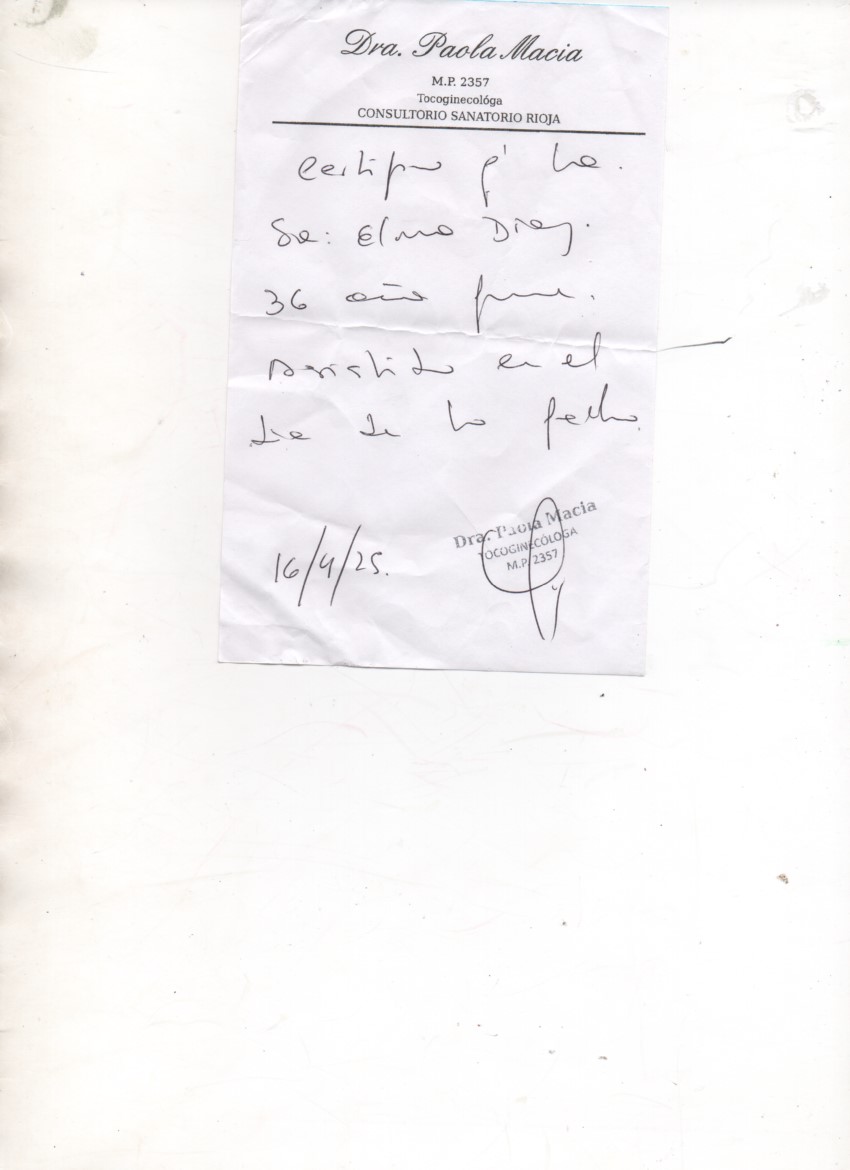 Dra. Paola Macia
M.P. 2357
Tocoginecológa
CONSULTORIO SANATORIO RIOJA
Certifico q' la.
Sra: Elma
36 años fue.
Asistida en el
día de la fecha.
16/4/25.
Dra. Paola Macia
TOCOGINECÓLOGA
M.P. 2357